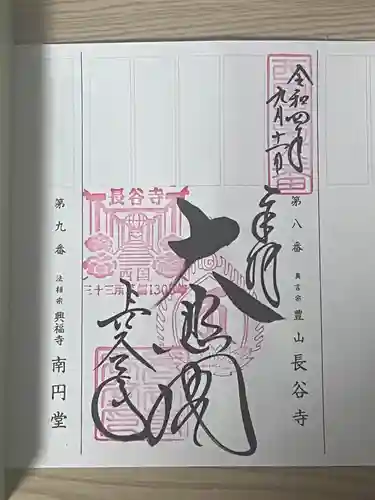 令和四年
九月十一日
第八番 真言宗 豊山 長谷寺
奉拝
大悲閣
長谷寺
西国
三十三所
第九番 法相宗 興福寺 南円堂